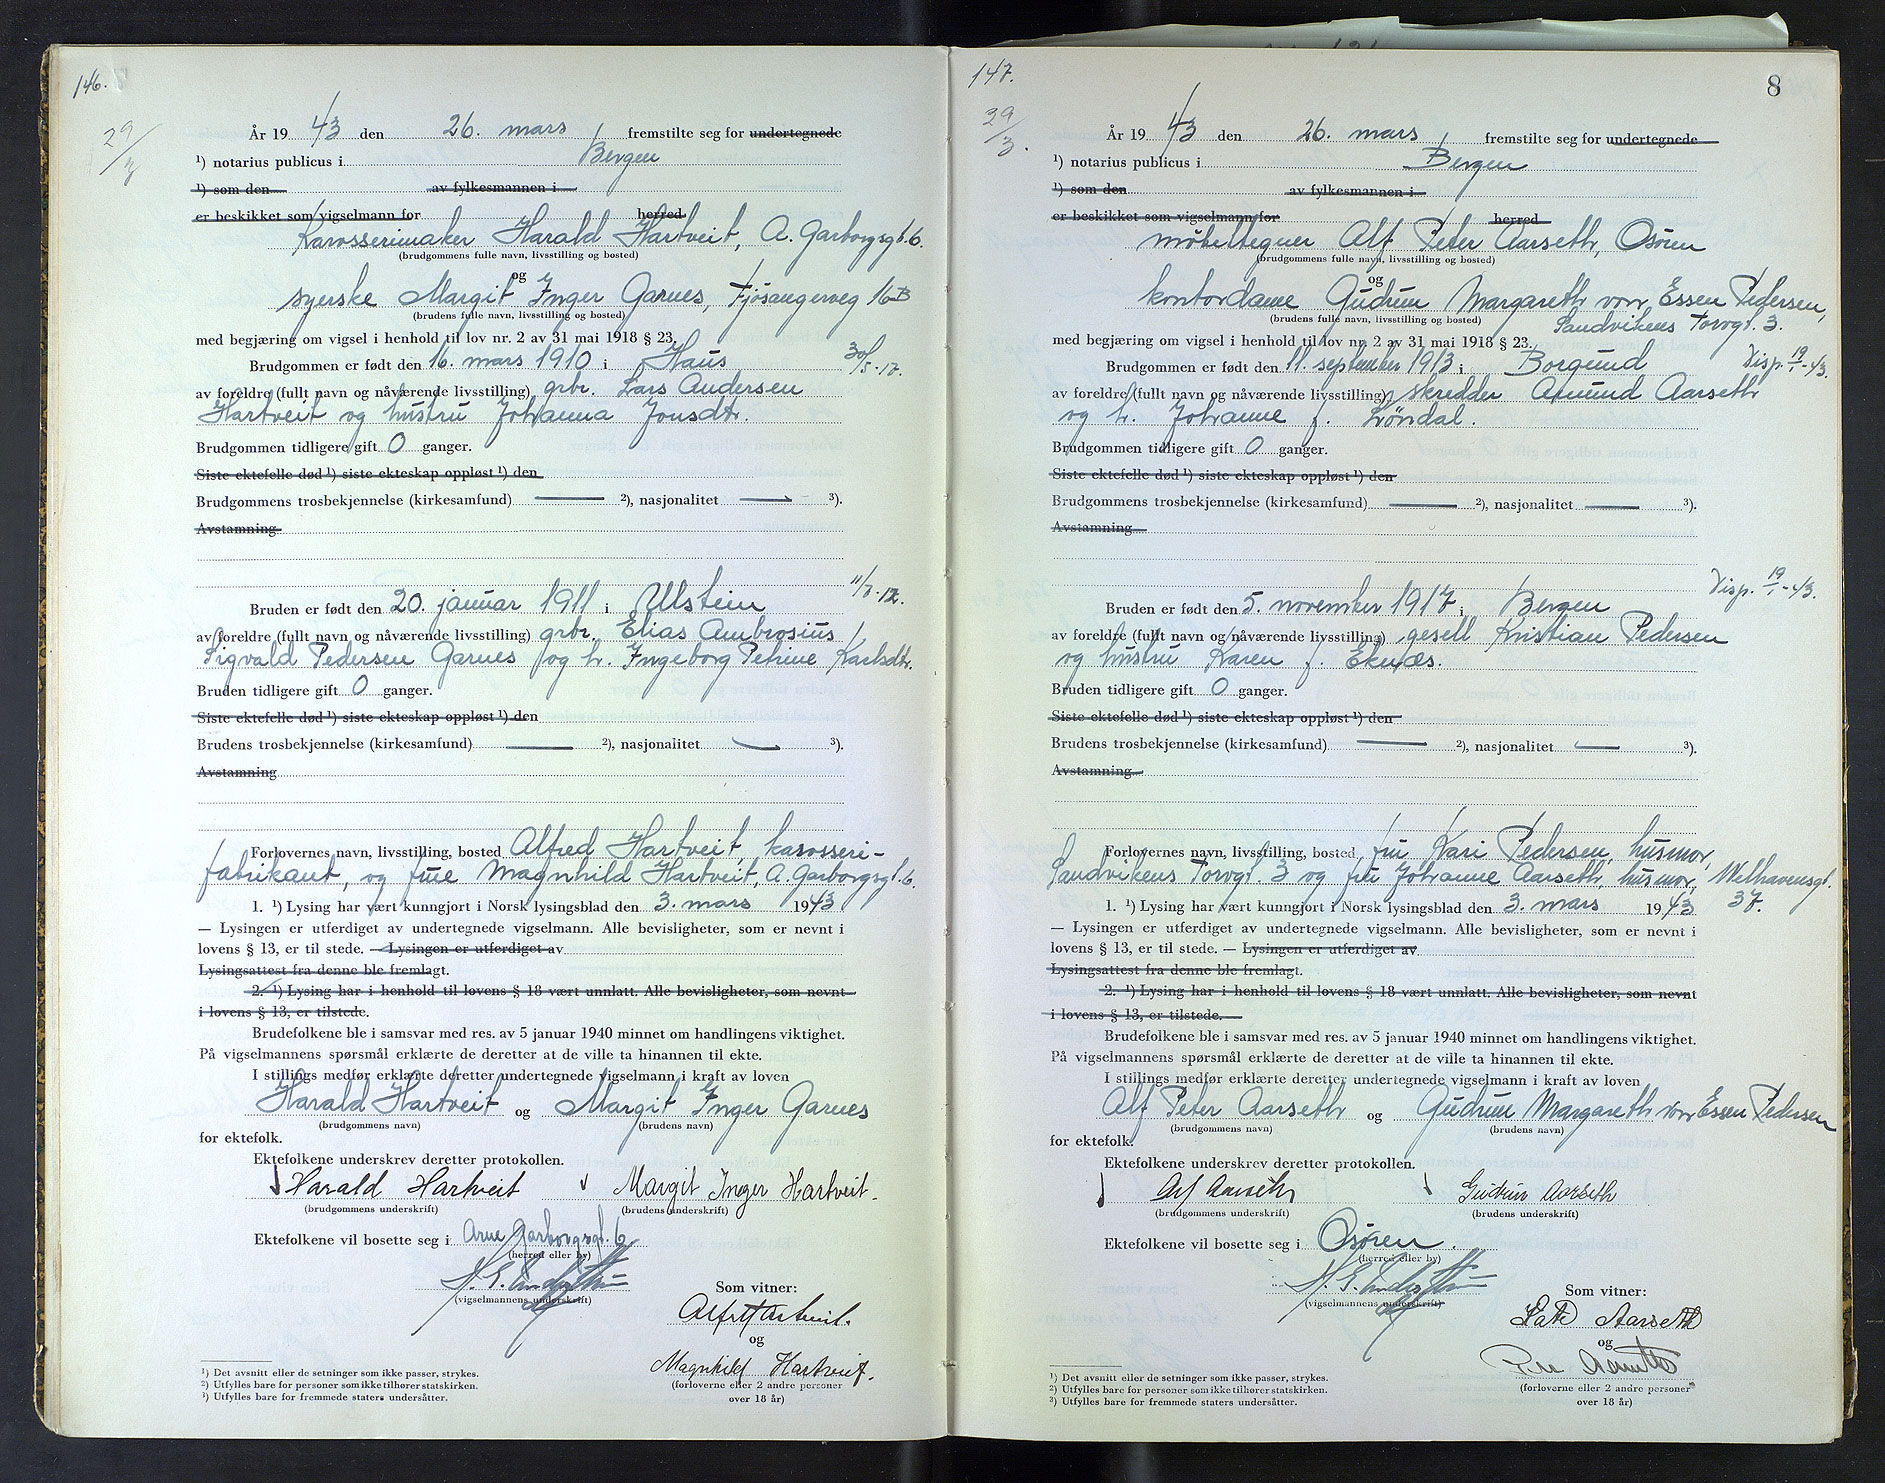 146.
29/3
År 1943 den 26. mars fremstilte seg for undertegnede
¹) notarius publicus i Bergen
¹) som den av fylkesmannen i
er beskikket som vigselmann for herred
Karosserimaker Harald Hartveit, A. Garborgsgt. 6.
(brudgommens fulle navn, livsstilling og bosted)
og
syerske Margit Inger Garnes, Fjösangerveg 16 B
(brudens fulle navn, livsstilling og bosted)
med begjæring om vigsel i henhold til lov nr. 2 av 31 mai 1918 § 23.
30/5-17.
Brudgommen er født den 16. mars 1910 i Haus
av foreldre (fullt navn og nåværende livsstilling) grbr. Lars Andersen
Hartveit og hustru Johanna Jonsdtr.
Brudgommen tidligere gift 0 ganger.
Siste ektefelle død ¹) siste ekteskap oppløst ¹) den
Brudgommens trosbekjennelse (kirkesamfund) ²), nasjonalitet ³).
Avstamning
11/7-12.
Bruden er født den 20. januar 1911 i Ulstein
av foreldre (fullt navn og nåværende livsstilling) grbr. Elias Ambrosius
Sigvald Pedersen Garnes og h. Ingeborg Petrine Karlsdtr.
Bruden tidligere gift 0 ganger.
Siste ektefelle død ¹) siste ekteskap oppløst ¹) den
Brudens trosbekjennelse (kirkesamfund) ²), nasjonalitet ³).
Avstamning
Forlovernes navn, livsstilling, bosted Alfred Hartveit, karosseri-
fabrikant, og frue Magnhild Hartveit, A. Garborgsgt. 6.
1. ¹) Lysing har vært kunngjort i Norsk lysingsblad den 3. mars 1943
— Lysingen er utferdiget av undertegnede vigselmann. Alle bevisligheter, som er nevnt i
lovens § 13, er til stede. — Lysingen er utferdiget av
Lysingsattest fra denne ble fremlagt.
2. ¹) Lysing har i henhold til lovens § 18 vært unnlatt. Alle bevisligheter, som nevnt
i lovens § 13, er tilstede.
Brudefolkene ble i samsvar med res. av 5 januar 1940 minnet om handlingens viktighet.
På vigselmannens spørsmål erklærte de deretter at de ville ta hinannen til ekte.
I stillings medfør erklærte deretter undertegnede vigselmann i kraft av loven
Harald Hartveit og Margit Inger Garnes
(brudgommens navn) (brudens navn)
for ektefolk.
Ektefolkene underskrev deretter protokollen.
Harald Hartveit Margit Inger Hartveit.
(brudgommens underskrift) (brudens underskrift)
Ektefolkene vil bosette seg i Arne Garborgsgt. 6
(herred eller by)
(vigselmannens underskrift)
Som vitner:
Alfr Hartveit.
og
Magnhild Hartveit.
(forloverne eller 2 andre personer
over 18 år)
¹) Det avsnitt eller de setninger som ikke passer, strykes.
²) Utfylles bare for personer som ikke tilhører statskirken.
³) Utfylles bare for fremmede staters undersåtter.
147.
8
29/3.
År 1943 den 26. mars fremstilte seg for undertegnede
¹) notarius publicus i Bergen
¹) som den av fylkesmannen i
er beskikket som vigselmann for herred
möbeltegner Alf Peter Aarseth, Osören
(brudgommens fulle navn, livsstilling og bosted)
og
kontordame Gudrun Margareth von Essen Pedersen,
(brudens fulle navn, livsstilling og bosted) Sandvikens Torvgt. 3.
med begjæring om vigsel i henhold til lov nr. 2 av 31 mai 1918 § 23.
Disp. 19/1-43.
Brudgommen er født den 11. september 1913 i Borgund
av foreldre (fullt navn og nåværende livsstilling) skredder Amund Aarseth
og h. Johanne f. Löndal.
Brudgommen tidligere gift 0 ganger.
Siste ektefelle død ¹) siste ekteskap oppløst ¹) den
Brudgommens trosbekjennelse (kirkesamfund) ²), nasjonalitet ³).
Avstamning
Disp. 19/1-43.
Bruden er født den 5. november 1917 i Bergen
av foreldre (fullt navn og nåværende livsstilling) gesell Kristian Pedersen
og hustru Karen f. Eknæs.
Bruden tidligere gift 0 ganger.
Siste ektefelle død ¹) siste ekteskap oppløst ¹) den
Brudens trosbekjennelse (kirkesamfund) ²), nasjonalitet ³).
Avstamning
Forlovernes navn, livsstilling, bosted fru Kari Pedersen, husmor,
Sandvikens Torvgt. 3 og fru Johanne Aarseth, husmor, Welhavensgt.
37.
1. ¹) Lysing har vært kunngjort i Norsk lysingsblad den 3. mars 1943
— Lysingen er utferdiget av undertegnede vigselmann. Alle bevisligheter, som er nevnt i
lovens § 13, er til stede. — Lysingen er utferdiget av
Lysingsattest fra denne ble fremlagt.
2. ¹) Lysing har i henhold til lovens § 18 vært unnlatt. Alle bevisligheter, som nevnt
i lovens § 13, er tilstede.
Brudefolkene ble i samsvar med res. av 5 januar 1940 minnet om handlingens viktighet.
På vigselmannens spørsmål erklærte de deretter at de ville ta hinannen til ekte.
I stillings medfør erklærte deretter undertegnede vigselmann i kraft av loven
Alf Peter Aarseth og Gudrun Margareth von Essen Pedersen
(brudgommens navn) (brudens navn)
for ektefolk.
Ektefolkene underskrev deretter protokollen.
Alf Aarseth Gudrun Aarseth
(brudgommens underskrift) (brudens underskrift)
Ektefolkene vil bosette seg i Osören.
(herred eller by)
(vigselmannens underskrift)
Som vitner:
Aarseth
og
(forloverne eller 2 andre personer
over 18 år)
¹) Det avsnitt eller de setninger som ikke passer, strykes.
²) Utfylles bare for personer som ikke tilhører statskirken.
³) Utfylles bare for fremmede staters undersåtter.